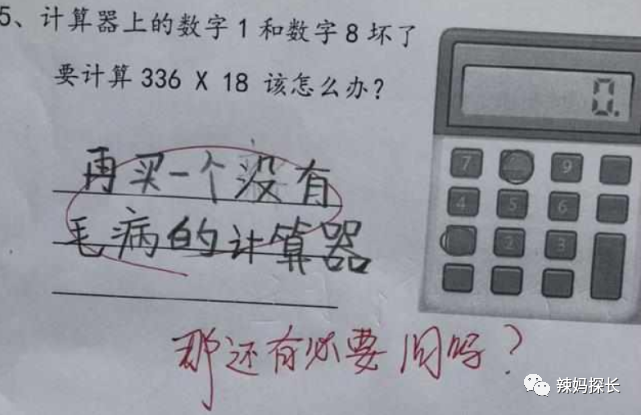 5、计算器上的数字1和数字8坏了
要计算 336 X 18 该怎么办?
0.
再买一个没有
毛病的计算器
7 9
4 5 6
2 3
那还有必要问吗?
辣妈探长